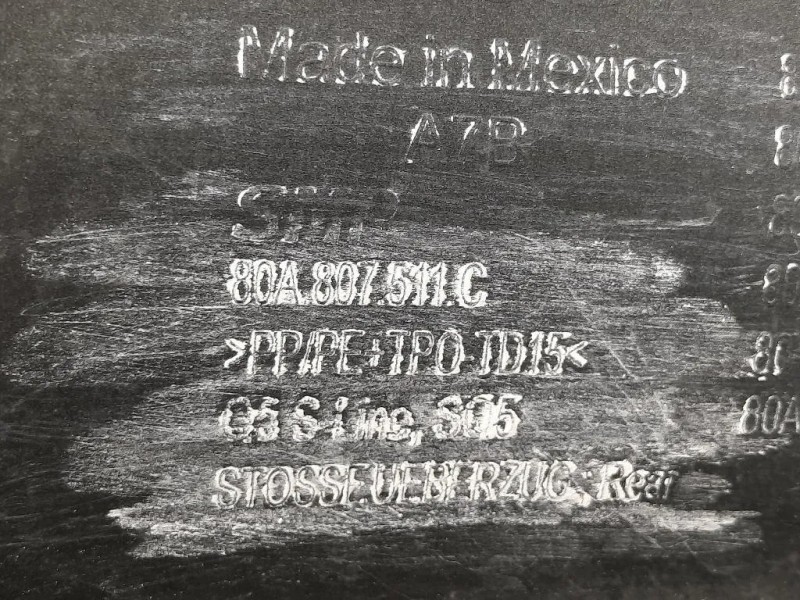 Made in Mexico
AZB
80A.807.511.C
>PP/PE+TPO-TD15<
Q5 S-Line, SQ5
STOSSFUEBERZUG; Rear
80A